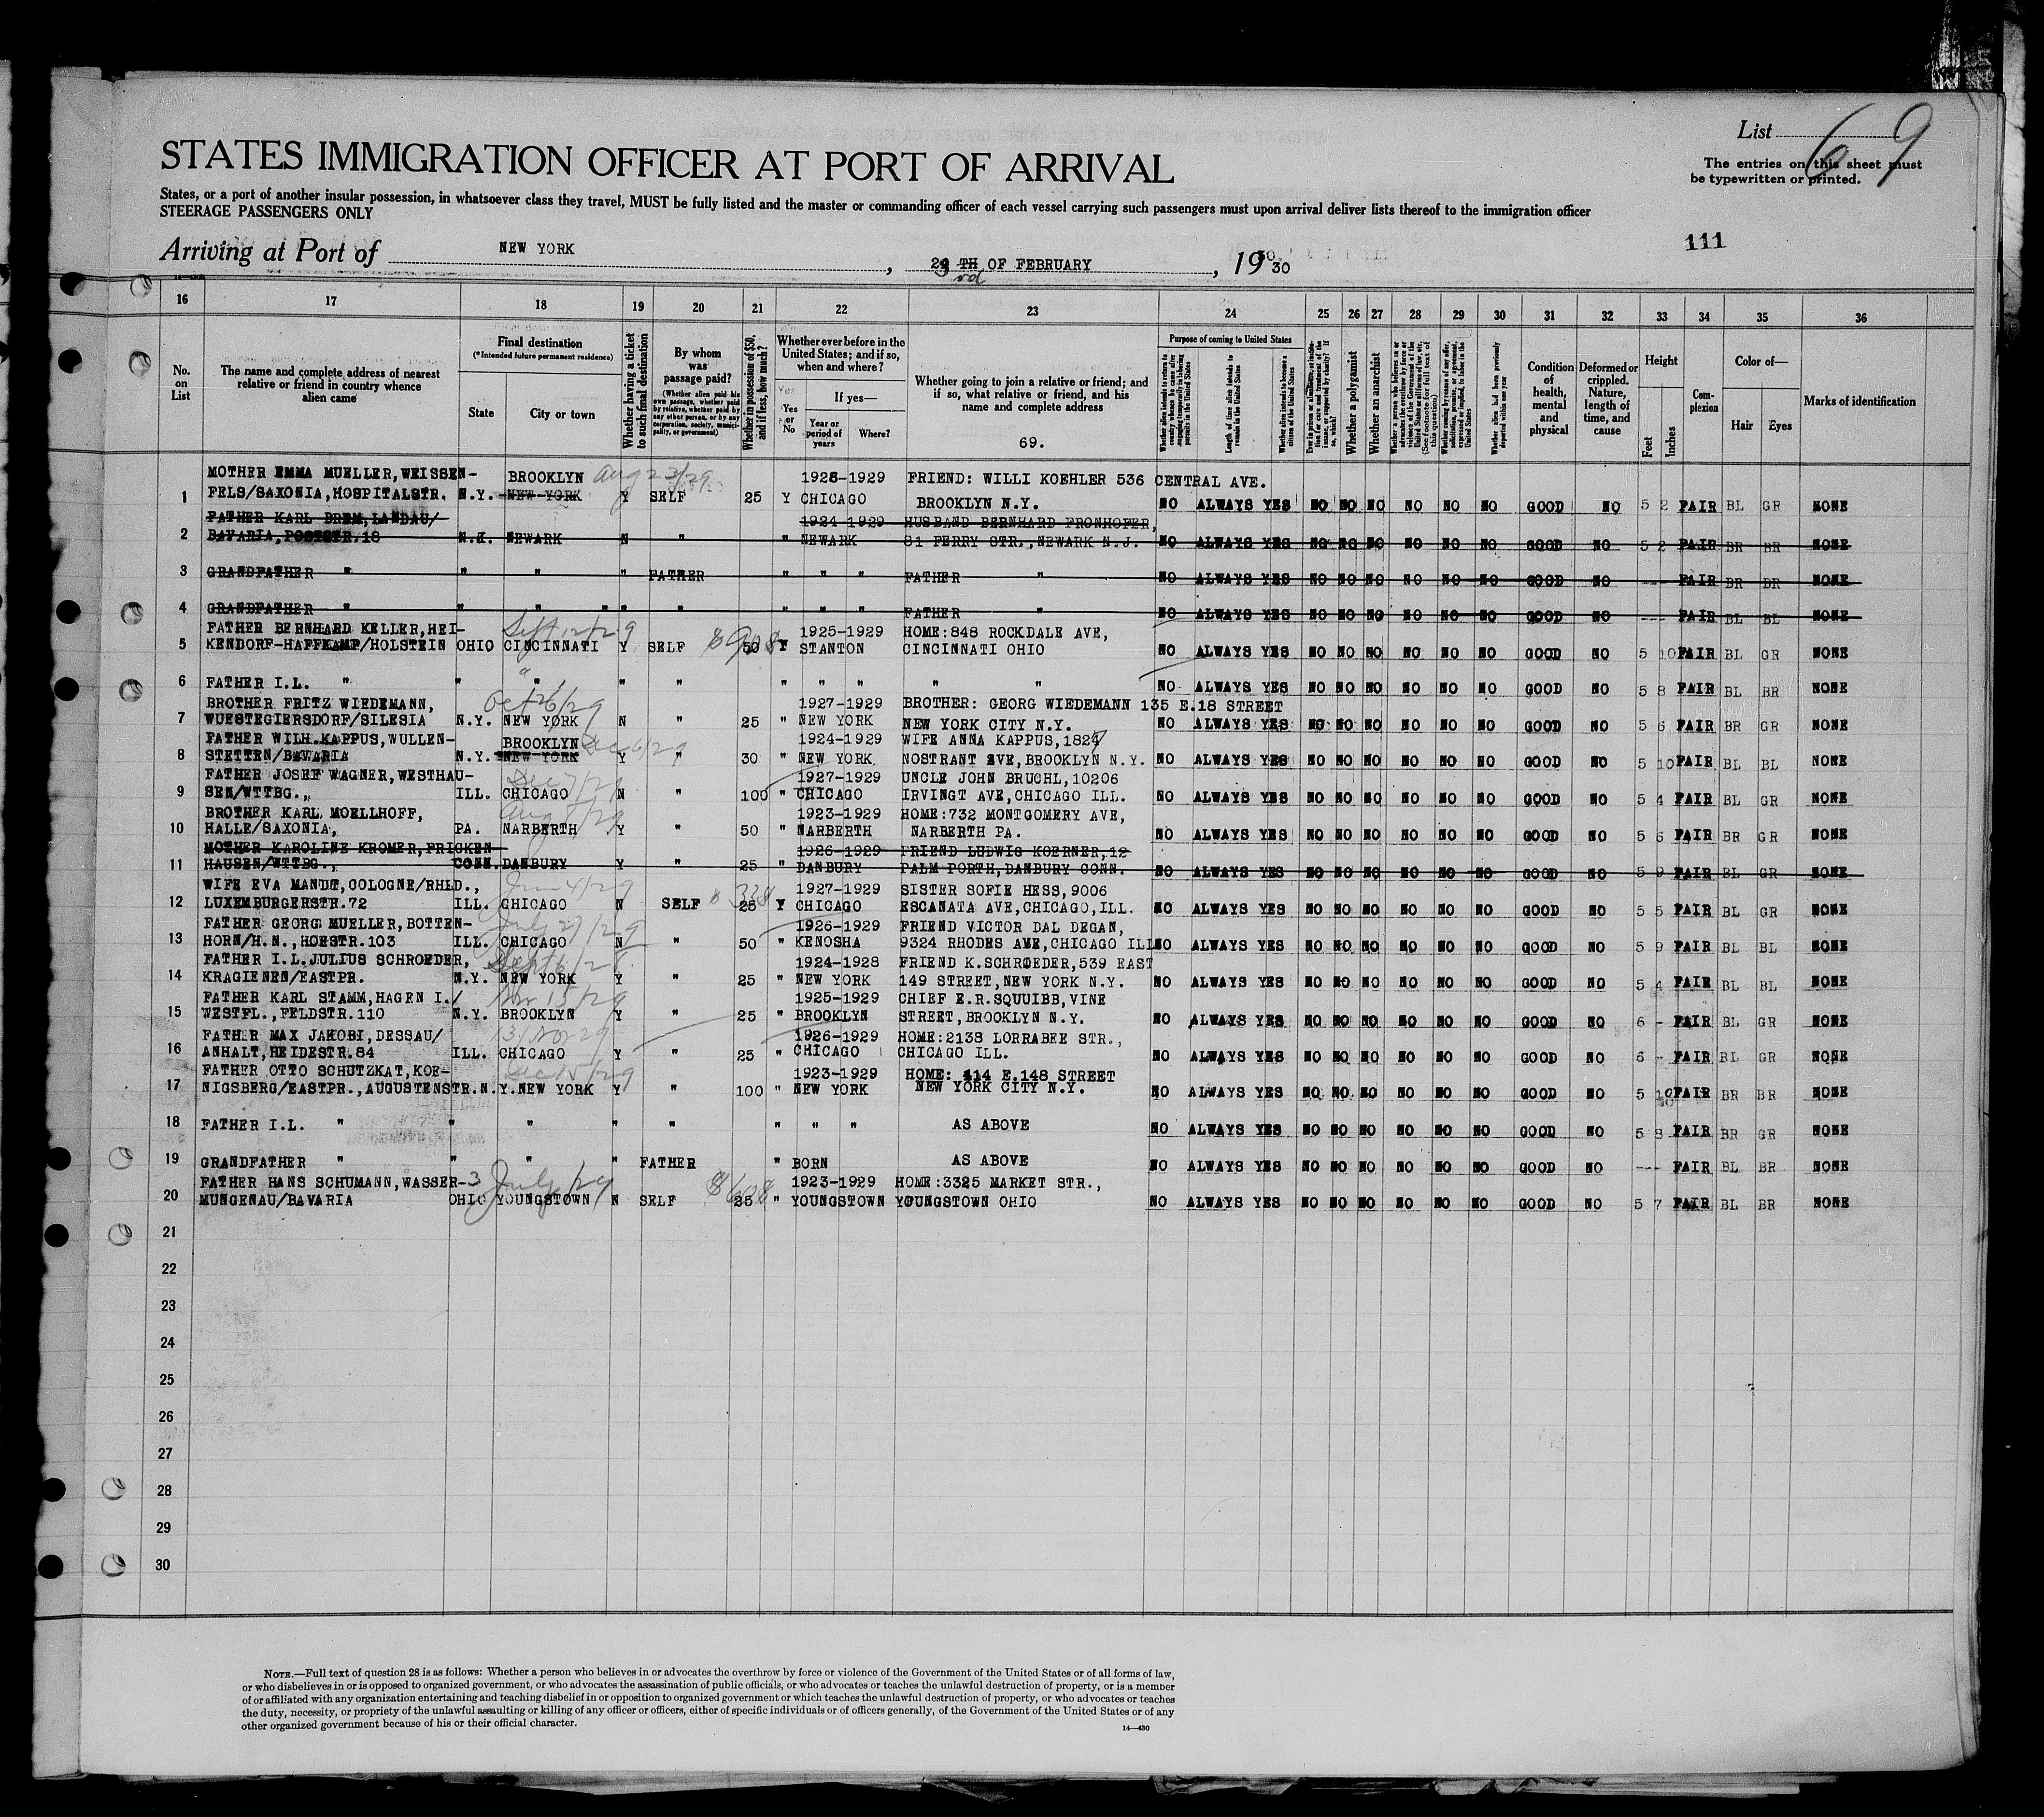 List 69
STATES IMMIGRATION OFFICER AT PORT OF ARRIVAL
The entries on this sheet must
be typewritten or printed.
States, or a port of another insular possession, in whatsoever class they travel, MUST be fully listed and the master or commanding officer of each vessel carrying such passengers must upon arrival deliver lists thereof to the immigration officer
STEERAGE PASSENGERS ONLY
111
Arriving at Port of NEW YORK, TH OF FEBRUARY, 19 30
rd
16 17 18 19 20 21 22 23 24 25 26 27 28 29 30 31 32 33 34 35 36
No. on List
The name and complete address of nearest relative or friend in country whence alien came
Final destination
(*Intended future permanent residence)
State
City or town
Whether having a ticket to such final destination
By whom was passage paid?
(Whether alien paid his own passage, whether paid by relative, whether paid by any other person, or by any corporation, society, municipality, or government)
Whether in possession of $50, and if less, how much?
Whether ever before in the United States; and if so, when and where?
Yes or No
If yes—
Year or period of years
Where?
Whether going to join a relative or friend; and if so, what relative or friend, and his name and complete address
69.
Purpose of coming to United States
Length of time alien intends to remain in the United States
Whether alien intends to become a citizen of the United States
Whether a polygamist
Whether an anarchist
Condition of health, mental and physical
Deformed or crippled. Nature, length of time, and cause
Height
Feet
Inches
Complexion
Color of—
Hair
Eyes
Marks of identification
MOTHER EMMA MUELLER, WEISSEN- BROOKLYN Aug 23/29 1926-1929 FRIEND: WILLI KOEHLER 536 CENTRAL AVE.
1 FELS/SAXONIA, HOSPITALSTR. N.Y. NEW YORK Y SELF 25 Y CHICAGO BROOKLYN N.Y. NO ALWAYS YES NO NO NO NO NO NO GOOD NO 5 2 FAIR BL GR NONE
FATHER KARL BREM, LANDAU/ 1924-1929 HUSBAND BERNHARD FRONHOFER,
2 BAVARIA, POSTSTR.18 N.J. NEWARK N " " NEWARK 81 FERRY STR., NEWARK N.J. NO ALWAYS YES NO NO NO NO NO NO GOOD NO 5 2 FAIR BR BR NONE
3 GRANDFATHER " " " " FATHER " " " FATHER " NO ALWAYS YES NO NO NO NO NO NO GOOD NO --- FAIR BR BR NONE
4 GRANDFATHER " " " " " " " " " FATHER " NO ALWAYS YES NO NO NO NO NO NO GOOD NO --- FAIR BL BL NONE
FATHER BERNHARD KELLER, HEI- Sept 12/29 1925-1929 HOME:848 ROCKDALE AVE,
5 KENDORF-HAFFKAMP/HOLSTEIN OHIO CINCINNATI Y SELF 50 Y STANTON CINCINNATI OHIO NO ALWAYS YES NO NO NO NO NO NO GOOD NO 5 10 FAIR BL GR NONE
6 FATHER I.L. " " " " " " " " " " NO ALWAYS YES NO NO NO NO NO NO GOOD NO 5 8 FAIR BL BR NONE
BROTHER FRITZ WIEDEMANN, Oct 26/29 1927-1929 BROTHER: GEORG WIEDEMANN 135 E.18 STREET
7 WUESTEGIERSDORF/SILESIA N.Y. NEW YORK N " 25 " NEW YORK NEW YORK CITY N.Y. NO ALWAYS YES NO NO NO NO NO NO GOOD NO 5 6 FAIR BR GR NONE
FATHER WILH.KAPPUS, WULLEN- BROOKLYN Dec 6/29 1924-1929 WIFE ANNA KAPPUS, 1824
8 STETTEN/BAVARIA N.Y. NEW YORK Y " 30 " NEW YORK NOSTRANT AVE, BROOKLYN N.Y. NO ALWAYS YES NO NO NO NO NO NO GOOD NO 5 10 FAIR BL BL NONE
FATHER JOSEF WAGNER, WESTHAU- Dec 7/29 1927-1929 UNCLE JOHN BRUCHL, 10206
9 SEN/WTTBG., ILL. CHICAGO N " 100 " CHICAGO IRVINGT AVE, CHICAGO ILL. NO ALWAYS YES NO NO NO NO NO NO GOOD NO 5 4 FAIR BL GR NONE
BROTHER KARL MOELLHOFF, Aug 8/29 1923-1929 HOME:732 MONTGOMERY AVE,
10 HALLE/SAXONIA, PA. NARBERTH Y " 50 " NARBERTH NARBERTH PA. NO ALWAYS YES NO NO NO NO NO NO GOOD NO 5 6 FAIR BR GR NONE
MOTHER KAROLINE KROMER, FRICKEN 1926-1929 FRIEND LUDWIG KOERNER, 12
11 HAUSEN/WTTBG., CONN. DANBURY Y " 25 " DANBURY PALM PORTH, DANBURY CONN. NO ALWAYS YES NO NO NO NO NO NO GOOD NO 5 9 FAIR BL GR NONE
WIFE EVA MANDT, COLOGNE/RHLD., 4/29 1927-1929 SISTER SOFIE HESS, 9006
12 LUXEMBURGERSTR.72 ILL. CHICAGO N SELF 25 Y CHICAGO ESCANATA AVE, CHICAGO, ILL. NO ALWAYS YES NO NO NO NO NO NO GOOD NO 5 5 FAIR BL GR NONE
FATHER GEORG MUELLER, BOTTEN- July 27/29 1926-1929 FRIEND VICTOR DAL DEGAN,
13 HORN/H.N., HOESTR.103 ILL. CHICAGO N " 50 " KENOSHA 9324 RHODES AVE, CHICAGO ILL NO ALWAYS YES NO NO NO NO NO NO GOOD NO 5 9 FAIR BL BL NONE
FATHER I.L. JULIUS SCHROEDER, Sept 6/28 1924-1928 FRIEND K.SCHROEDER, 539 EAST
14 KRAGIENEN/EASTPR. N.Y. NEW YORK Y 25 " NEW YORK 149 STREET, NEW YORK N.Y. NO ALWAYS YES NO NO NO NO NO NO GOOD NO 5 4 FAIR BL BL NONE
FATHER KARL STAMM, HAGEN I./ Nov 15/29 1925-1929 CHIEF E.R.SQUUIBB, VINE
15 WESTFL., FELDSTR.110 N.Y. BROOKLYN Y " 25 " BROOKLYN STREET, BROOKLYN N.Y. NO ALWAYS YES NO NO NO NO NO NO GOOD NO 6 - FAIR BL GR NONE
FATHER MAX JAKOBI, DESSAU/ 13/Nov 29 1926-1929 HOME:2138 LORRABEE STR.,
16 ANHALT, HEIDESTR.84 ILL. CHICAGO Y " 25 " CHICAGO CHICAGO ILL. NO ALWAYS YES NO NO NO NO NO NO GOOD NO 6 - FAIR BL GR NONE
FATHER OTTO SCHUTZKAT, KOE- Dec 15/29 1923-1929 HOME: 414 E.148 STREET
17 NIGSBERG/EASTPR., AUGUSTENSTR. N.Y. NEW YORK Y " 100 " NEW YORK NEW YORK CITY N.Y. NO ALWAYS YES NO NO NO NO NO NO GOOD NO 5 10 FAIR BR BR NONE
18 FATHER I.L. " " " " " " " " AS ABOVE NO ALWAYS YES NO NO NO NO NO NO GOOD NO 5 8 FAIR BR GR NONE
19 GRANDFATHER " " " " FATHER " BORN AS ABOVE NO ALWAYS YES NO NO NO NO NO NO GOOD NO --- FAIR BL BR NONE
FATHER HANS SCHUMANN, WASSER- 3 July/29 1923-1929 HOME:3325 MARKET STR.,
20 MUNGENAU/BAVARIA OHIO YOUNGSTOWN N SELF 25 " YOUNGSTOWN YOUNGSTOWN OHIO NO ALWAYS YES NO NO NO NO NO NO GOOD NO 5 7 FAIR BL BR NONE
21
22
23
24
25
26
27
28
29
30
NOTE.—Full text of question 28 is as follows: Whether a person who believes in or advocates the overthrow by force or violence of the Government of the United States or of all forms of law,
or who disbelieves in or is opposed to organized government, or who advocates the assassination of public officials, or who advocates or teaches the unlawful destruction of property, or is a member
of or affiliated with any organization entertaining and teaching disbelief in or opposition to organized government or which teaches the unlawful destruction of property, or who advocates or teaches
the duty, necessity, or propriety of the unlawful assaulting or killing of any officer or officers, either of specific individuals or of officers generally, of the Government of the United States or of any
other organized government because of his or their official character.
14—430